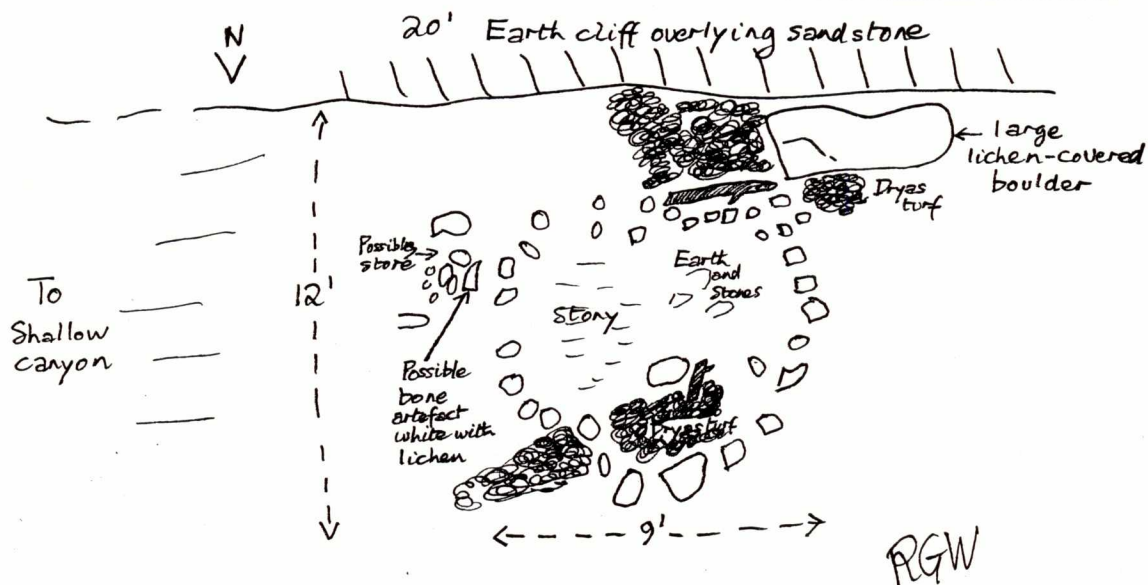 N
20' Earth cliff overlying sandstone
large
lichen-covered
boulder
Dryas
turf
Possible
store
Earth
and
Stones
To
Shallow
canyon
12'
Stony
Possible
bone
artefact
white with
lichen
Dryas turf
9'
RGW